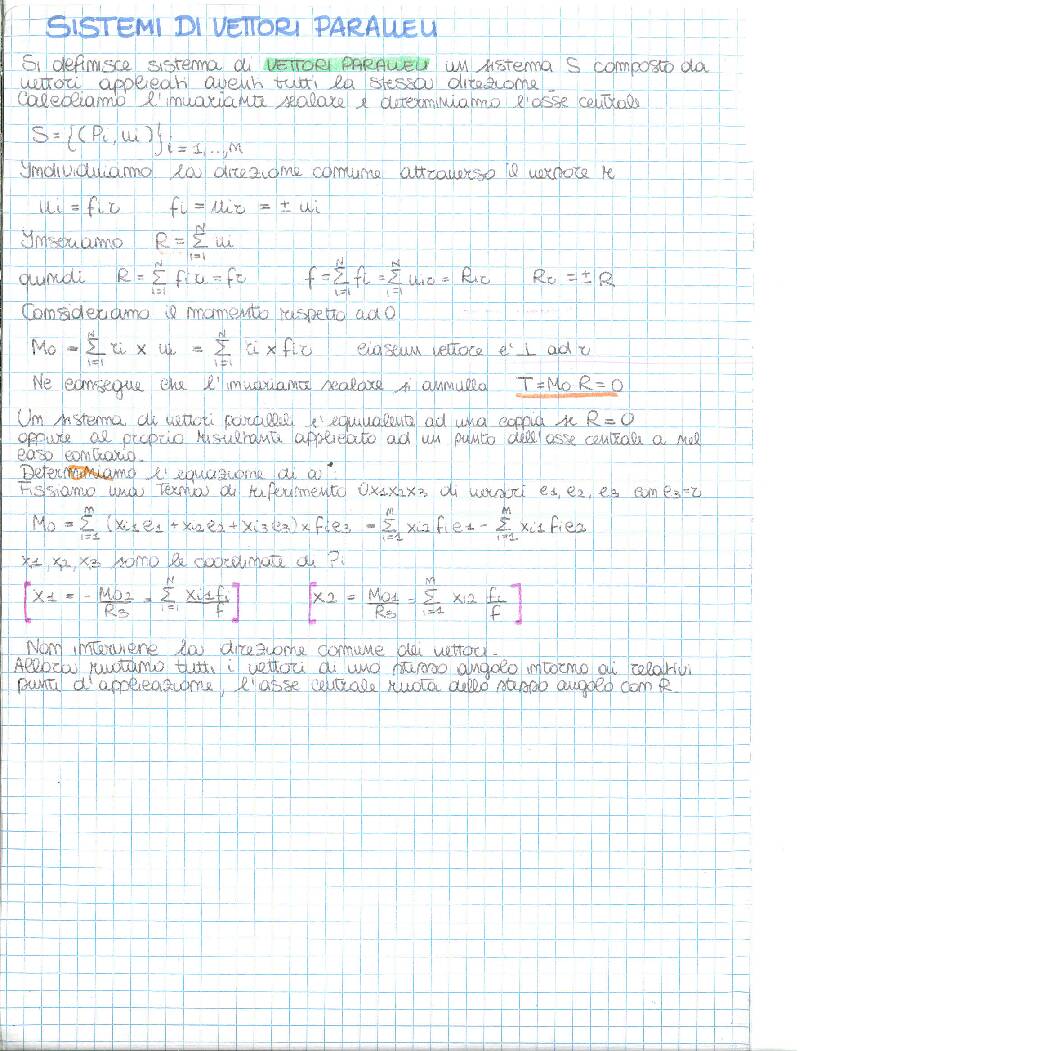 SISTEMI DI VETTORI PARALLELI
Si definisce sistema di VETTORI PARALLELI un sistema S composto da
vettori applicati aventi tutti la stessa direzione.
Calcoliamo l'invariante scalare e determiniamo l'asse centrale
S = {(Pi, ui)} i = 1,..,n
Individuiamo la direzione comune attraverso il versore r
ui = fir fi = uir = ± ui
Inseriamo R = N Σ i=1 ui
quindi R = N Σ i=1 fir = fr f = N Σ i=1 fi = N Σ i=1 uir = Rr Rr = ± R
Consideriamo il momento rispetto ad O
Mo = N Σ i=1 ri x ui = N Σ i=1 ri x fir ciascun vettore e' ⊥ ad r
Ne consegue che l'invariante scalare si annulla T = Mo R = 0
Un sistema di vettori paralleli e' equivalente ad una coppia se R = 0
oppure al proprio risultante applicato ad un punto dell'asse centrale a nel
caso contrario.
Determiniamo l'equazione di a:
Fissiamo una terna di riferimento Ox1x2x3 di versori e1, e2, e3 con e3 = r
Mo = n Σ i=1 (xi1e1 + xi2e2 + xi3e3) x fie3 = n Σ i=1 xi2 fie1 - n Σ i=1 xi1 fie2
x1, x2, x3 sono le coordinate di Pi
[x1 = - Mo2/R3 = N Σ i=1 xi1fi/f] [x2 = Mo1/R3 = n Σ i=1 xi2 fi/f]
Non interviene la direzione comune dei vettori.
Allora ruotiamo tutti i vettori di uno stesso angolo intorno ai relativi
punti d'applicazione, l'asse centrale ruota dello stesso angolo con R